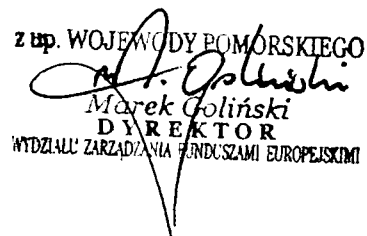 z up. WOJEWODY POMORSKIEGO
Marek Goliński
DYREKTOR
WYDZIAŁU ZARZĄDZANIA FUNDUSZAMI EUROPEJSKIMI